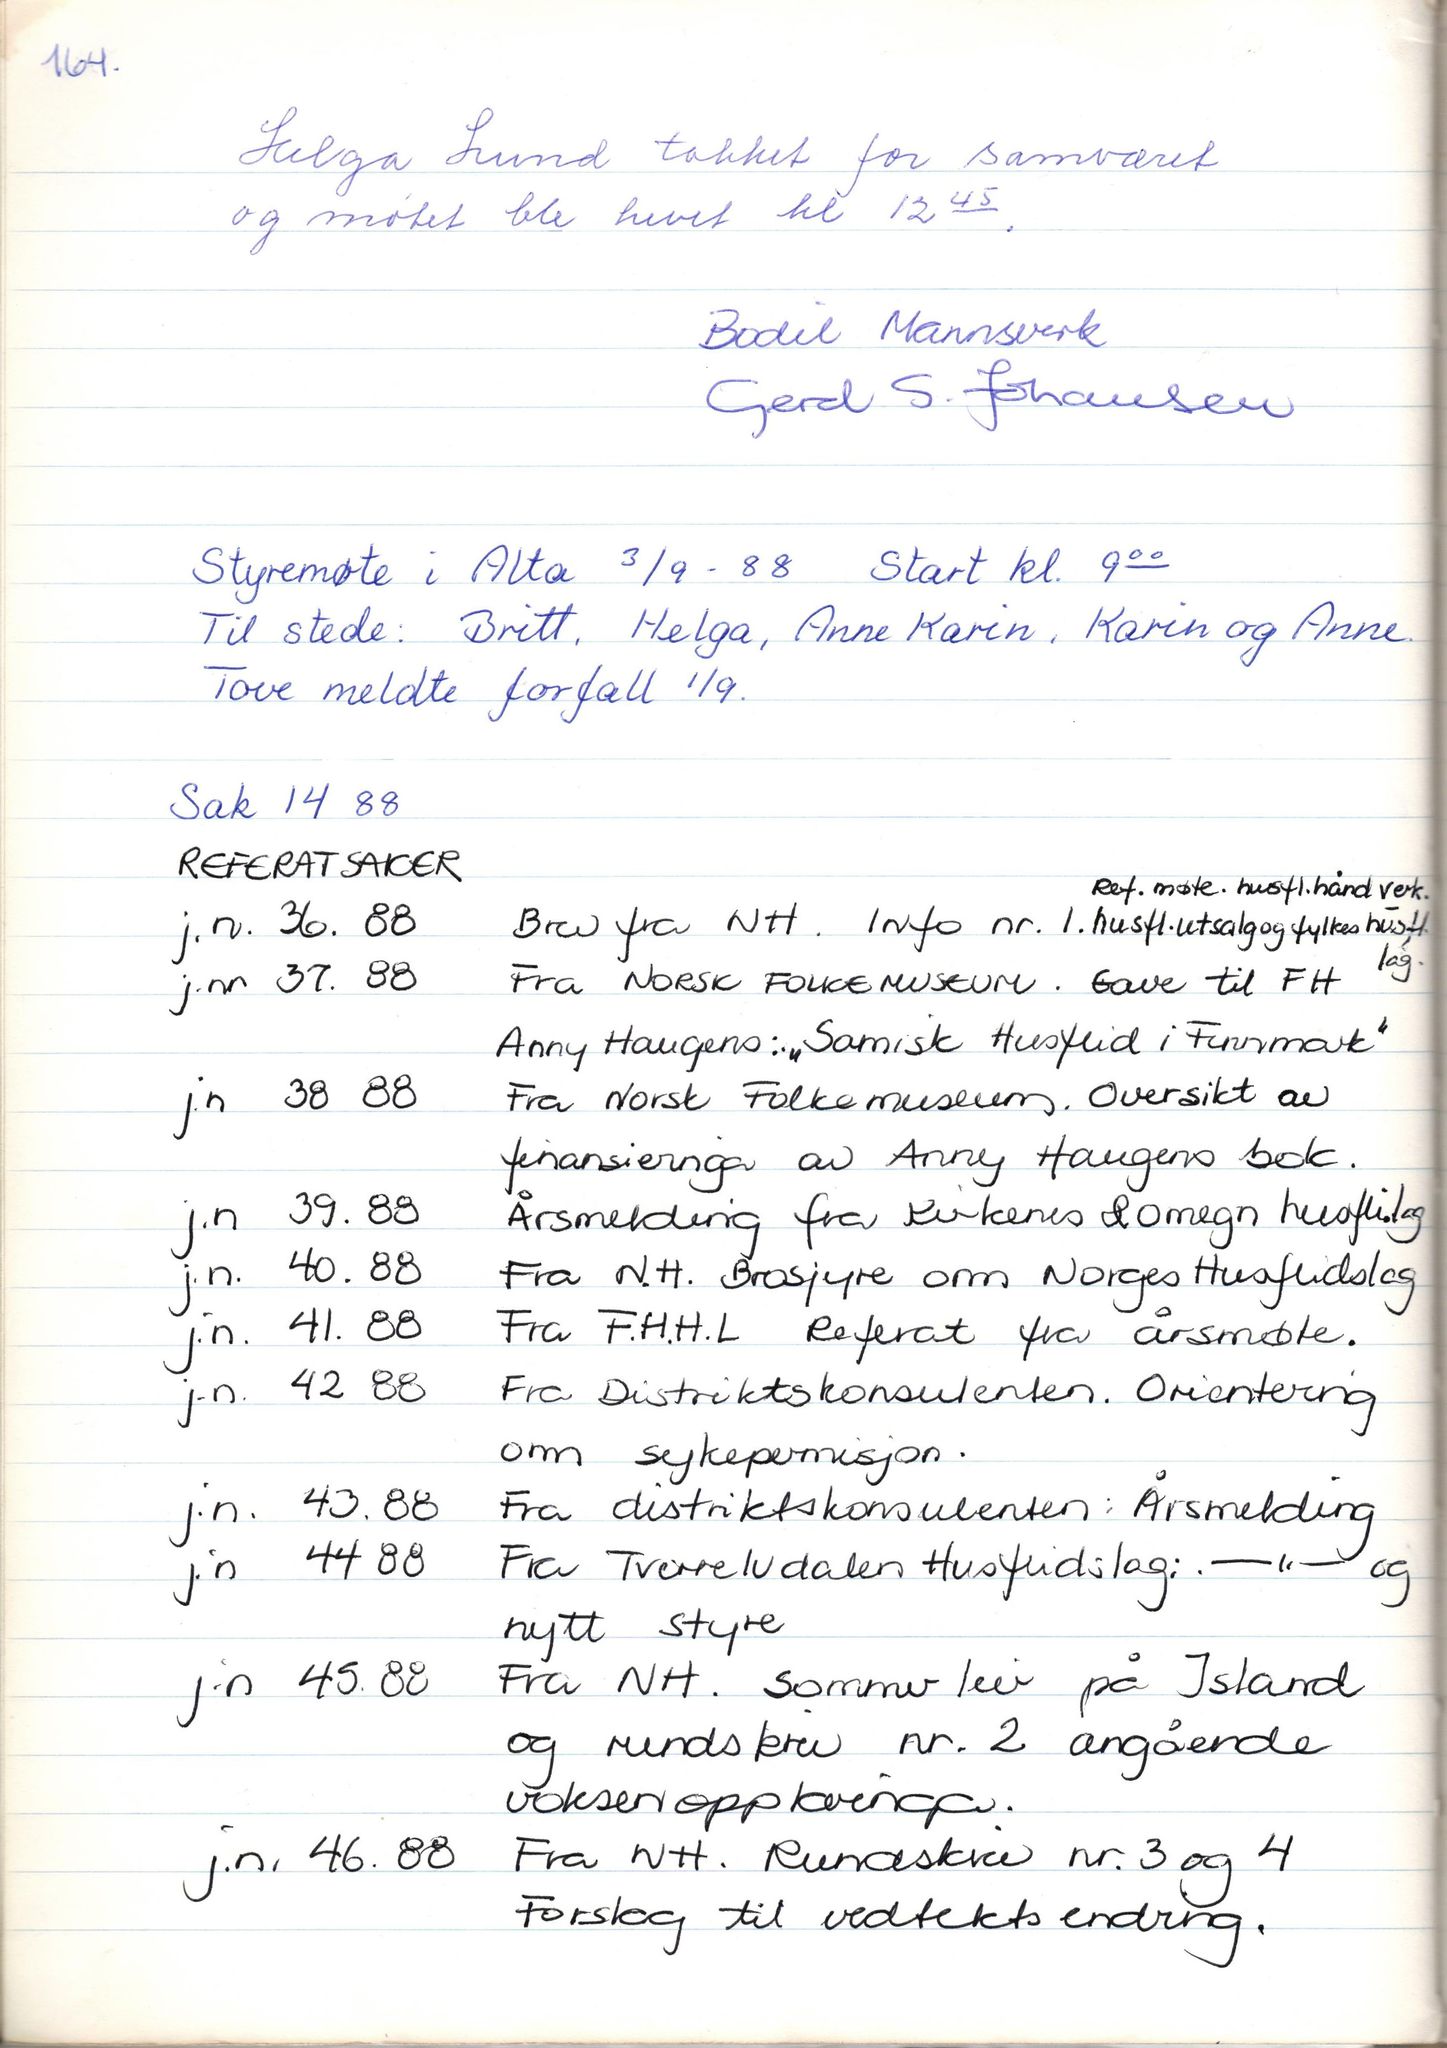 164.
Helga Lund takket for samværet
og møtet ble hevet kl 12 45.
Bodil Mannsverk
Gerd S. Johansen
Styremøte i Alta 3/9 - 88 Start kl. 9 00
Til stede: Britt, Helga, Anne Karin, Karin og Anne.
Tove meldte forfall 1/9.
Sak 14 88
REFERATSAKER
Ref. møte. husfl.håndverk.
j.n. 36. 88 Brev fra NH. Info nr. 1. husfl.utsalg og fylkeshusfl.
lag.
j.nr 37. 88 Fra NORSK FOLKEMUSEUM. Gave til FH
Anny Haugens: „Samisk Husflid i Finnmark"
j.n 38 88 Fra Norsk Folkemuseum. Oversikt av
finansieringa av Anny Haugens bok.
j.n 39. 88 Årsmelding fra Kirkenes & omegn husflilag
j.n. 40. 88 Fra N.H. Brosjyre om Norges Husflidslag
j.n. 41. 88 Fra F.H.H.L Referat fra årsmøte.
j.n. 42 88 Fra Distriktskonsulenten. Orientering
om sykepermisjon.
j.n. 43. 88 Fra distriktskonsulenten: Årsmelding
j.n 44 88 Fra Tverrelvdalen Husflidslag: . —"— og
nytt styre
j.n 45. 88 Fra NH. Sommerleir på Island
og rundskriv nr. 2 angående
voksenopplæringa.
j.n. 46. 88 Fra NH. Rundskriv nr. 3 og 4
Forslag til vedtektsendring.